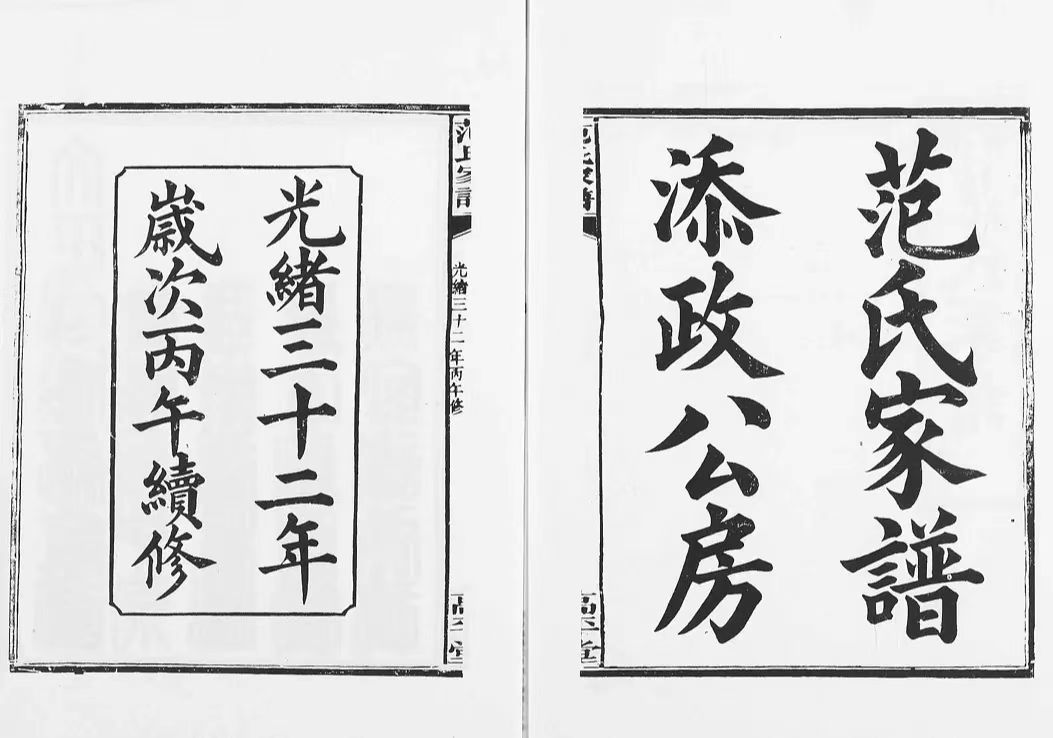 范氏家譜
添政公房
范氏家譜
高平堂
范氏家譜
光緒三十二年丙午修
高平堂
光緒三十二年
歲次丙午續修